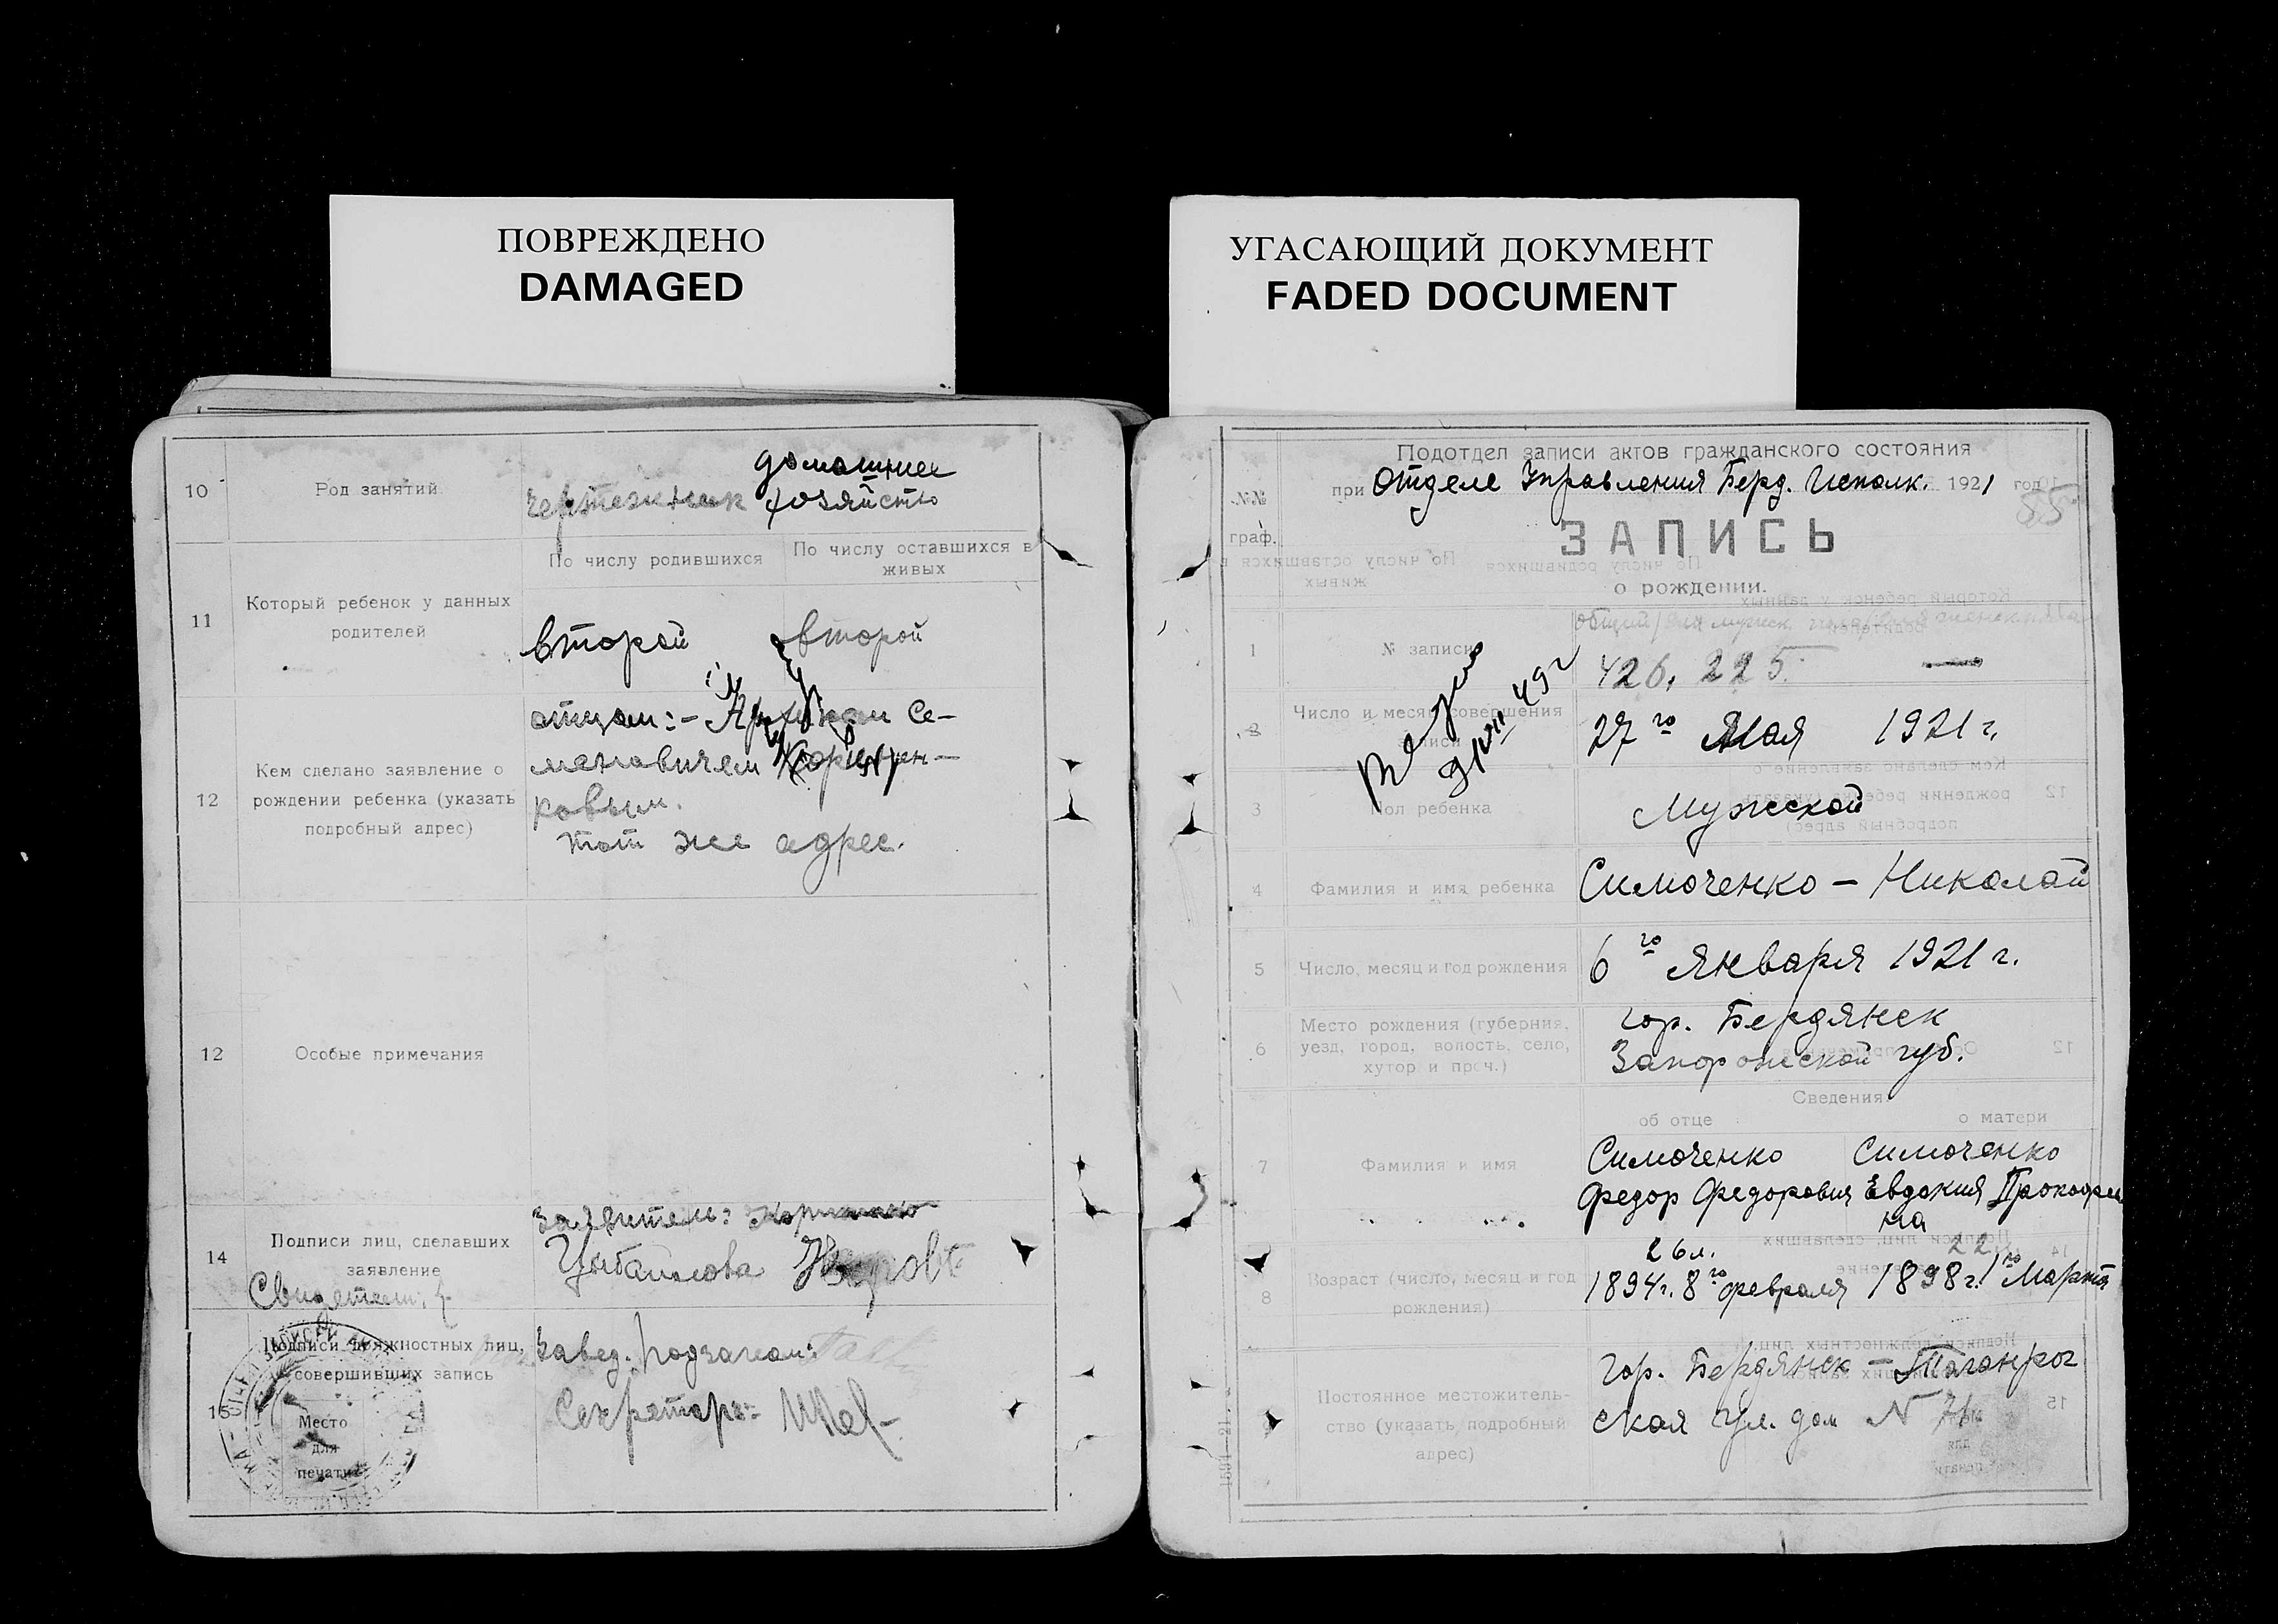 ПОВРЕЖДЕНО
DAMAGED
УГАСАЮЩИЙ ДОКУМЕНТ
FADED DOCUMENT
10
Род занятий
чертежник
домашнее
хозяйство
11
Который ребенок у данных
родителей
По числу родившихся
По числу оставшихся в
живых
второй
второй
12
Кем сделано заявление о
рождении ребенка (указать
подробный адрес)
отцом:- Се-
меновичем
ковым.
тот же адрес.
12
Особые примечания
14
Подписи лиц, сделавших
заявление
Свидетели:
заявитель:
15
Подписи должностных лиц,
совершивших запись
Место
для
печати
Завед. подзагсом:
Секретарь:-
Подотдел записи актов гражданского состояния
при Отделе Управления Берд. Исполк. 1921 год
55
№№
граф.
ЗАПИСЬ
о рождении.
1
№ записи
426. 225. —
2
Число и месяц совершения
записи
27го Мая 1921 г.
3
Пол ребенка
Мужской
4
Фамилия и имя ребенка
Симоченко — Николай
5
Число, месяц и год рождения
6го Января 1921 г.
6
Место рождения (губерния,
уезд, город, волость, село,
хутор и проч.)
гор. Бердянск
Запорожской губ.
Сведения
об отце
о матери
7
Фамилия и имя
Симоченко
Федор Федорович
Симоченко
Евдокия Прокофьев
на
8
Возраст (число, месяц и год
рождения)
26 л.
1894 г. 8го февраля
22
1898 г. 1го Марта
9
Постоянное местожитель-
ство (указать подробный
адрес)
гор. Бердянск — Таганрог
ская ул. дом N